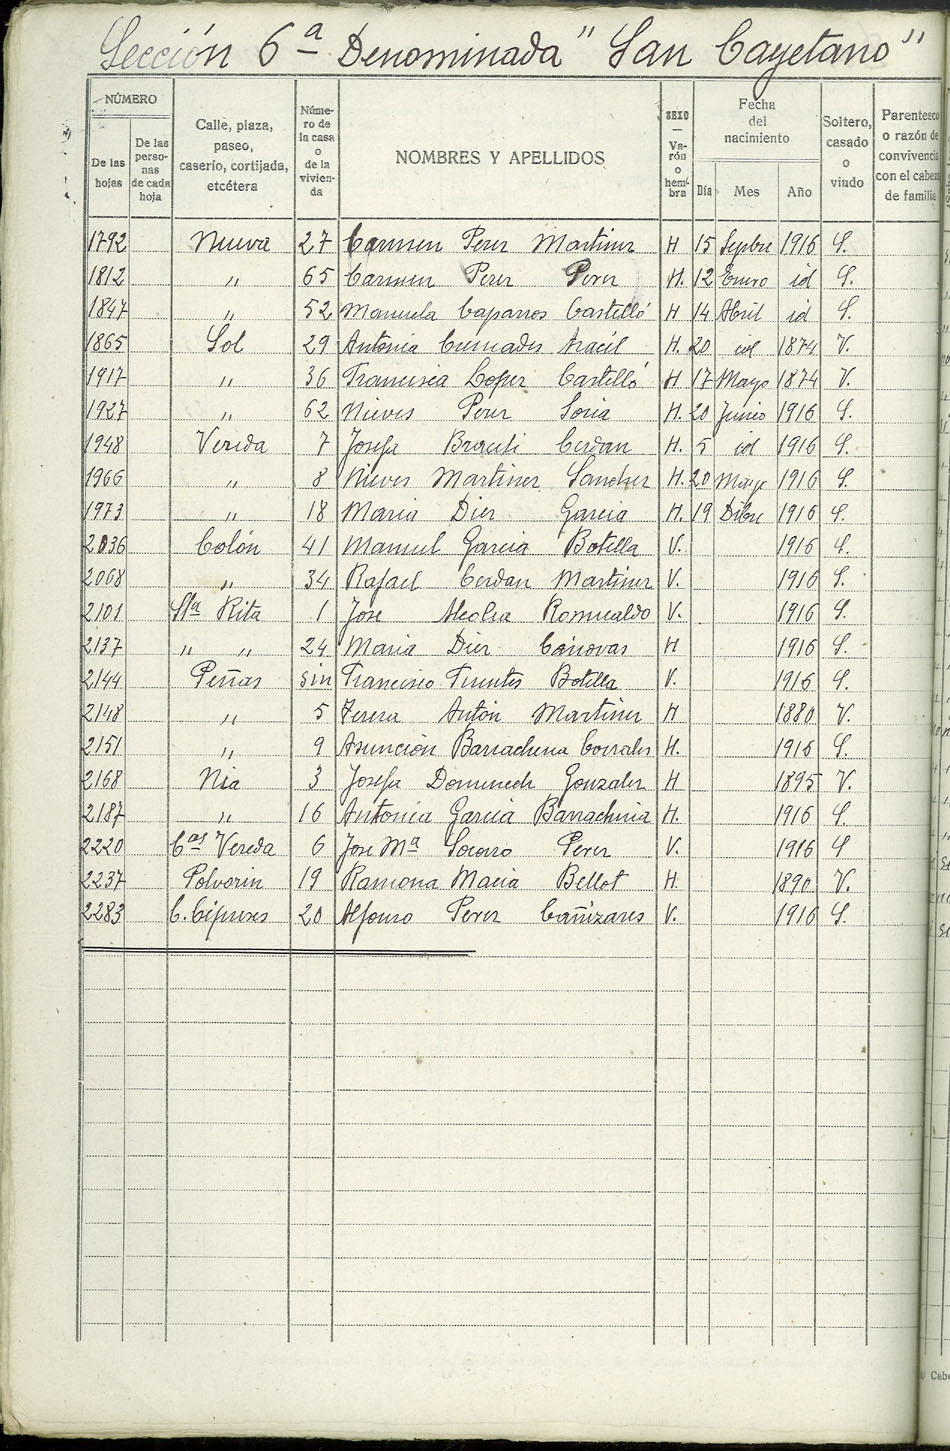 Sección 6ª Denominada "San Cayetano"
NÚMERO
De las hojas
De las perso-nas de cada hoja
Calle, plaza, paseo, caserío, cortijada, etcétera
Núme-ro de la casa o de la vivien-da
NOMBRES Y APELLIDOS
SEXO — Va-rón o hem-bra
Fecha del nacimiento
Día Mes Año
Soltero, casado o viudo
Parentesco o razón de convivencia con el cabeza de familia
1792 Nueva 27 Carmen Perez Martinez H 15 Sepbre 1916 S.
1812 " 65 Carmen Perez Perez H. 12 Enero id S.
1847 " 52 Manuela Caparros Castelló H 14 Abril id S.
1865 Sol 29 Antonia Aracil H. 20 id 1874 V.
1917 " 36 Francisca Lopez Castelló H 17 Mayo 1874 V.
1927 " 62 Nieves Perez Soria H. 20 Junio 1916 S.
1948 Vereda 7 Josefa Cerdan H. 5 id 1916 S.
1966 " 8 Nieves Martinez Sanchez H. 20 Mayo 1916 S.
1973 " 18 Maria Diez Garcia H. 19 Dibre 1916 S.
2036 Colón 41 Manuel Garcia Botella V. 1916 S.
2068 " 34 Rafael Cerdan Martinez V. 1916 S.
2101 Sta Rita 1 Jose Alcolea Romualdo V. 1916 S.
2137 " " 24 Maria Diez Cánovas H 1916 S.
2144 Peñas sin Francisco Fuentes Botella V. 1916 S.
2148 " 5 Teresa Antón Martinez H 1880 V.
2151 " 9 Asunción Barrachina Corrales H. 1916 S.
2168 Nía 3 Josefa Domenech Gonzalez H 1895 V.
2187 " 16 Antonia Garcia Barrachina H. 1916 S.
2220 Cas Vereda 6 Jose Mª Socorro Perez V. 1916 S
2237 Polvorin 19 Ramona Macia Bellot H 1890 V.
2283 C. Cipreses 20 Alfonso Perez Cañizares V. 1916 S.